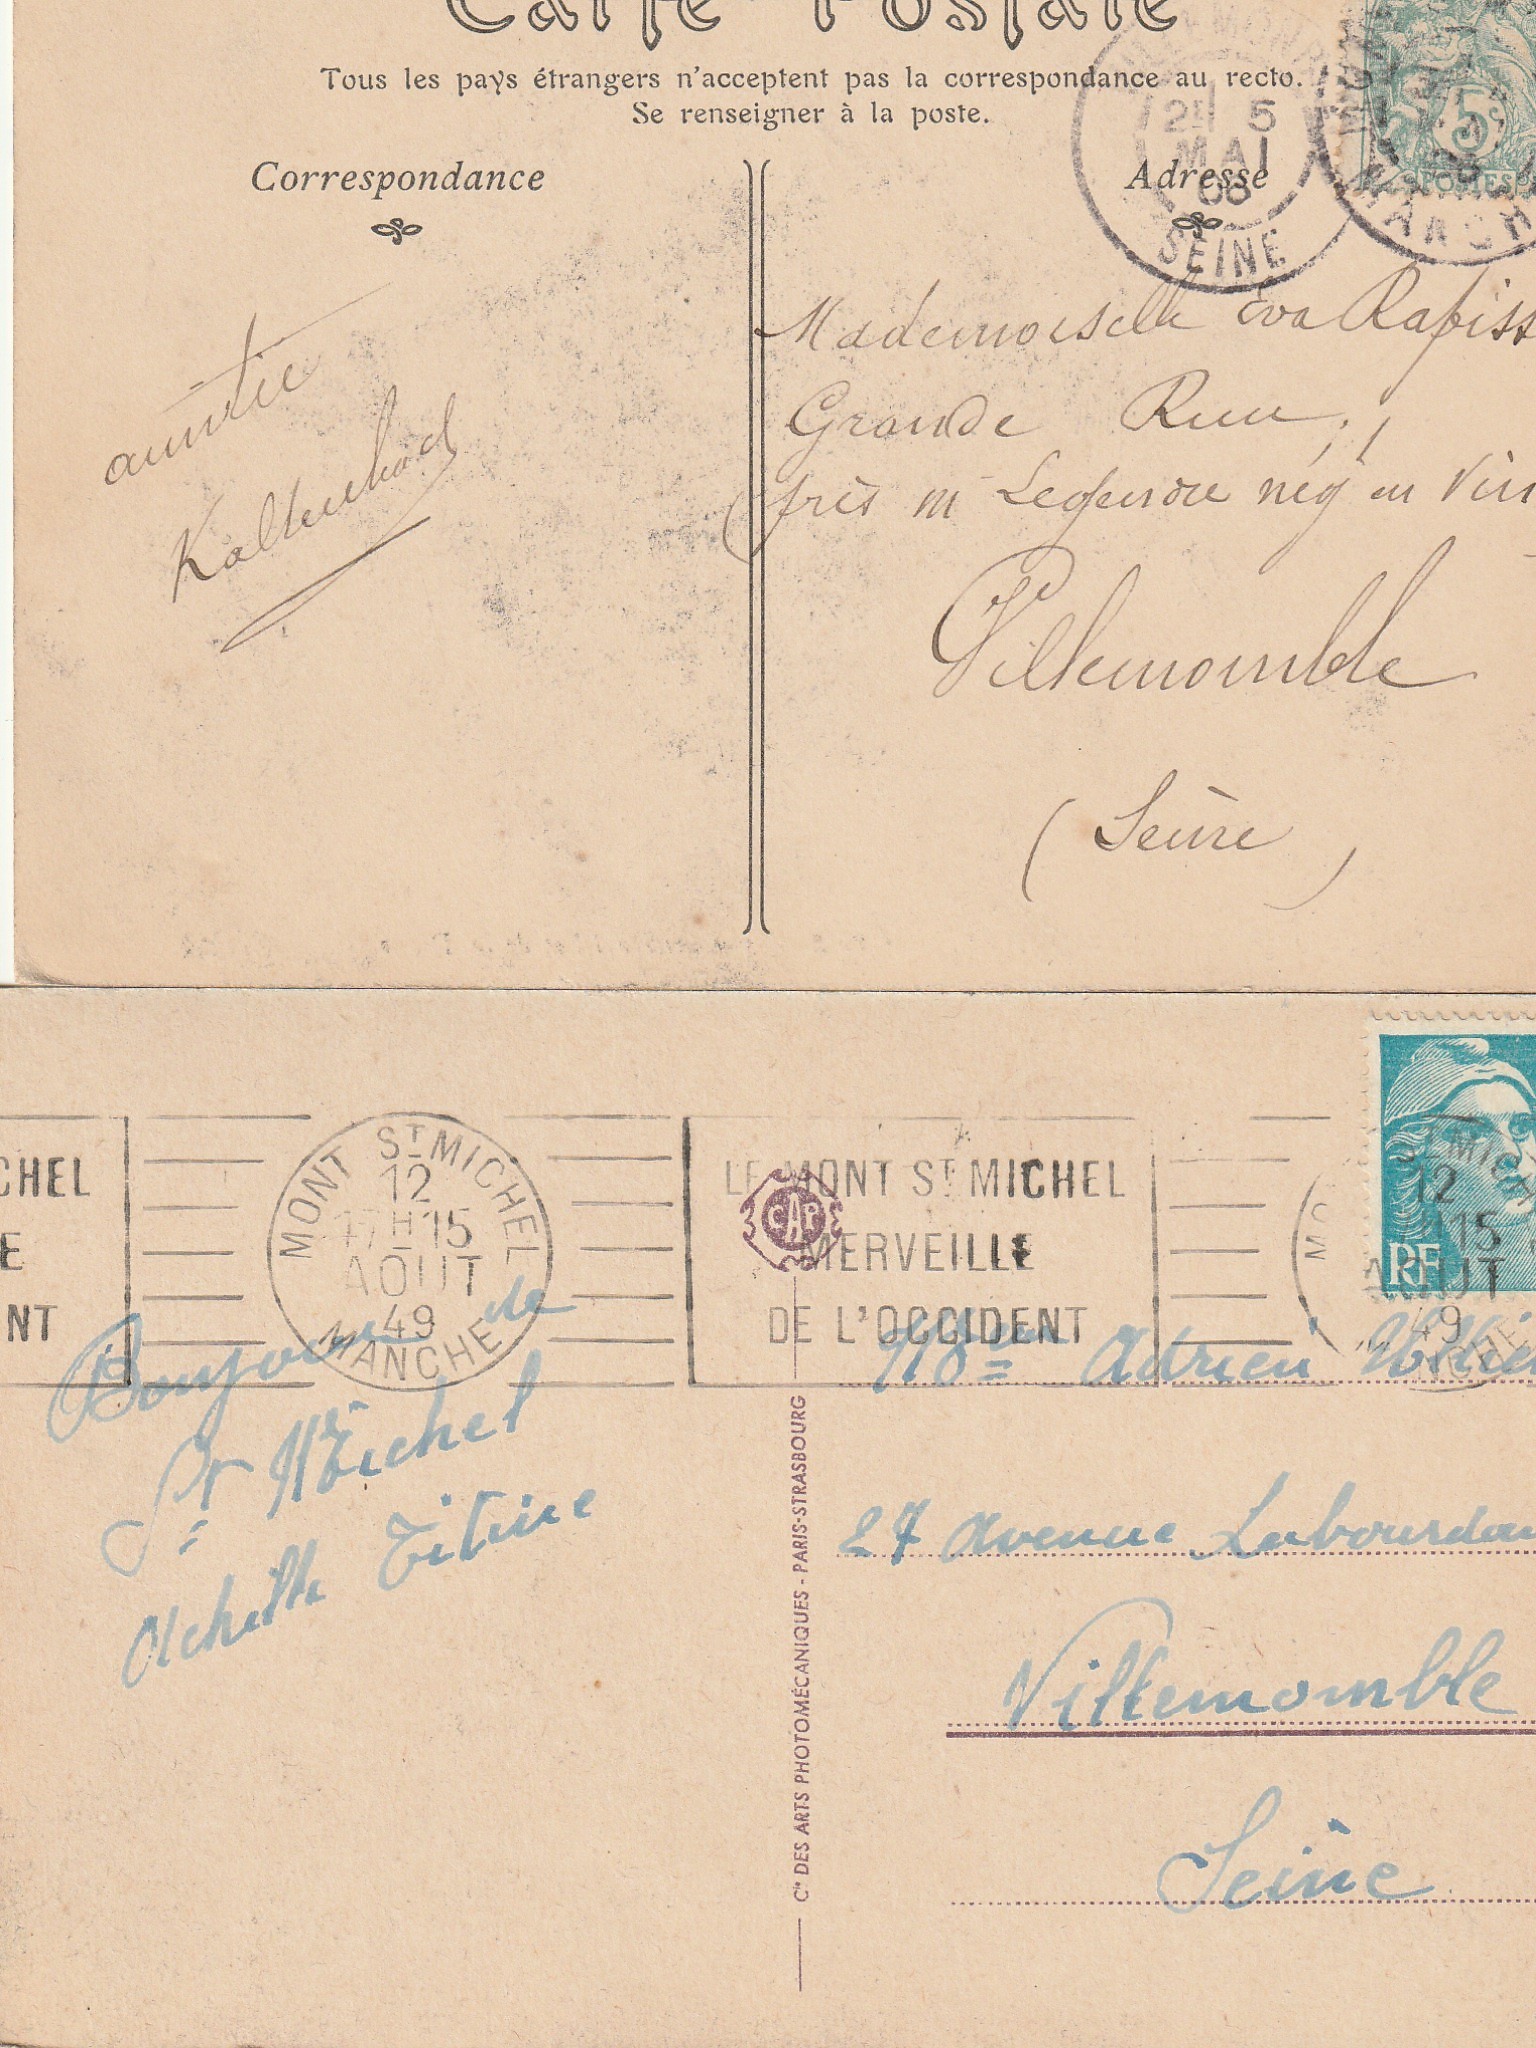 Carte Postale
Tous les pays étrangers n'acceptent pas la correspondance au recto.
Se renseigner à la poste.
Correspondance
Adresse
2E 5
MAI
SEINE
5
POSTES
Kaltenbach
Mademoiselle Eva
Grande Rue
près M Legendre nég en Vin
Villemomble
(Seine)
CHEL
E
NT
MONT ST MICHEL
12
17H15
AOUT
49
MANCHE
LE MONT ST MICHEL
MERVEILLE
DE L'OCCIDENT
CAP
RF
12
15
AOUT
49
Bonjour de
St Michel
Achille Titine
Adrien
27 Avenue Labourdon
Villemomble
Seine
Cie DES ARTS PHOTOMÉCANIQUES - PARIS-STRASBOURG